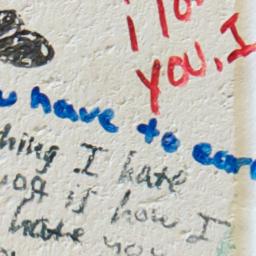 i lo
you, I
have to ear
thing I hate
is how I
hate you